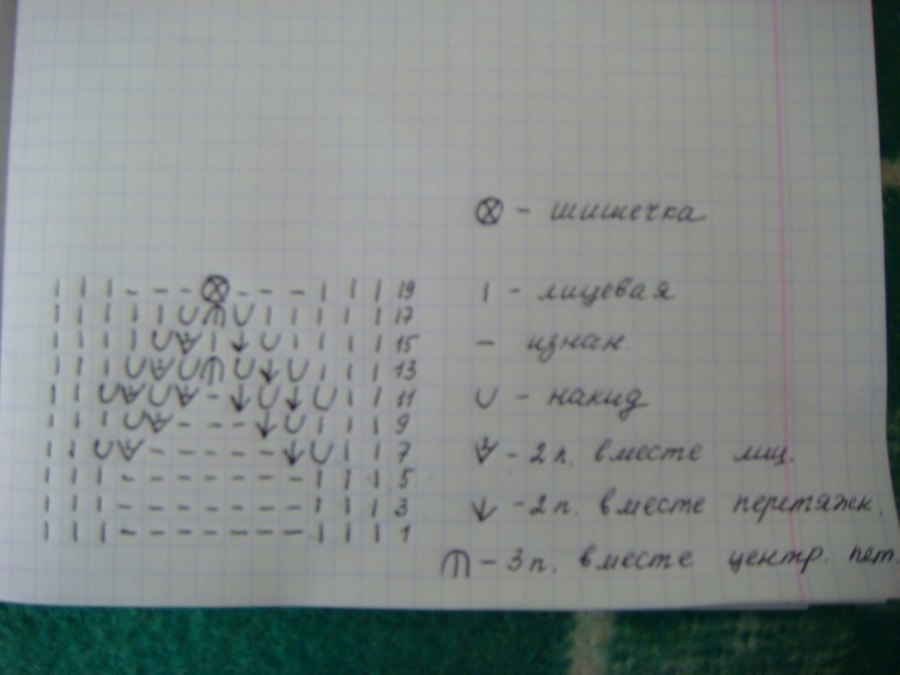 ⊗ - шишечка
| | | - - - ⊗ - - - | | | 19
| - лицевая
| | | | | U ⋒ U | | | | | 17
| | | | U V | ↓ U | | | | 15
- изнан.
| | | U V U ⋒ U ↓ U | | | 13
| | U V U V - ↓ U ↓ U | | 11
U - накид
| | | U V - - - ↓ U | | | 9
| | U V - - - - - ↓ U | | 7
V - 2 п. вместе лиц.
| | | - - - - - - - | | | 5
| | | - - - - - - - | | | 3
↓ - 2 п. вместе перетяжк.
| | | - - - - - - - | | | 1
⋒ - 3 п. вместе центр. пет.